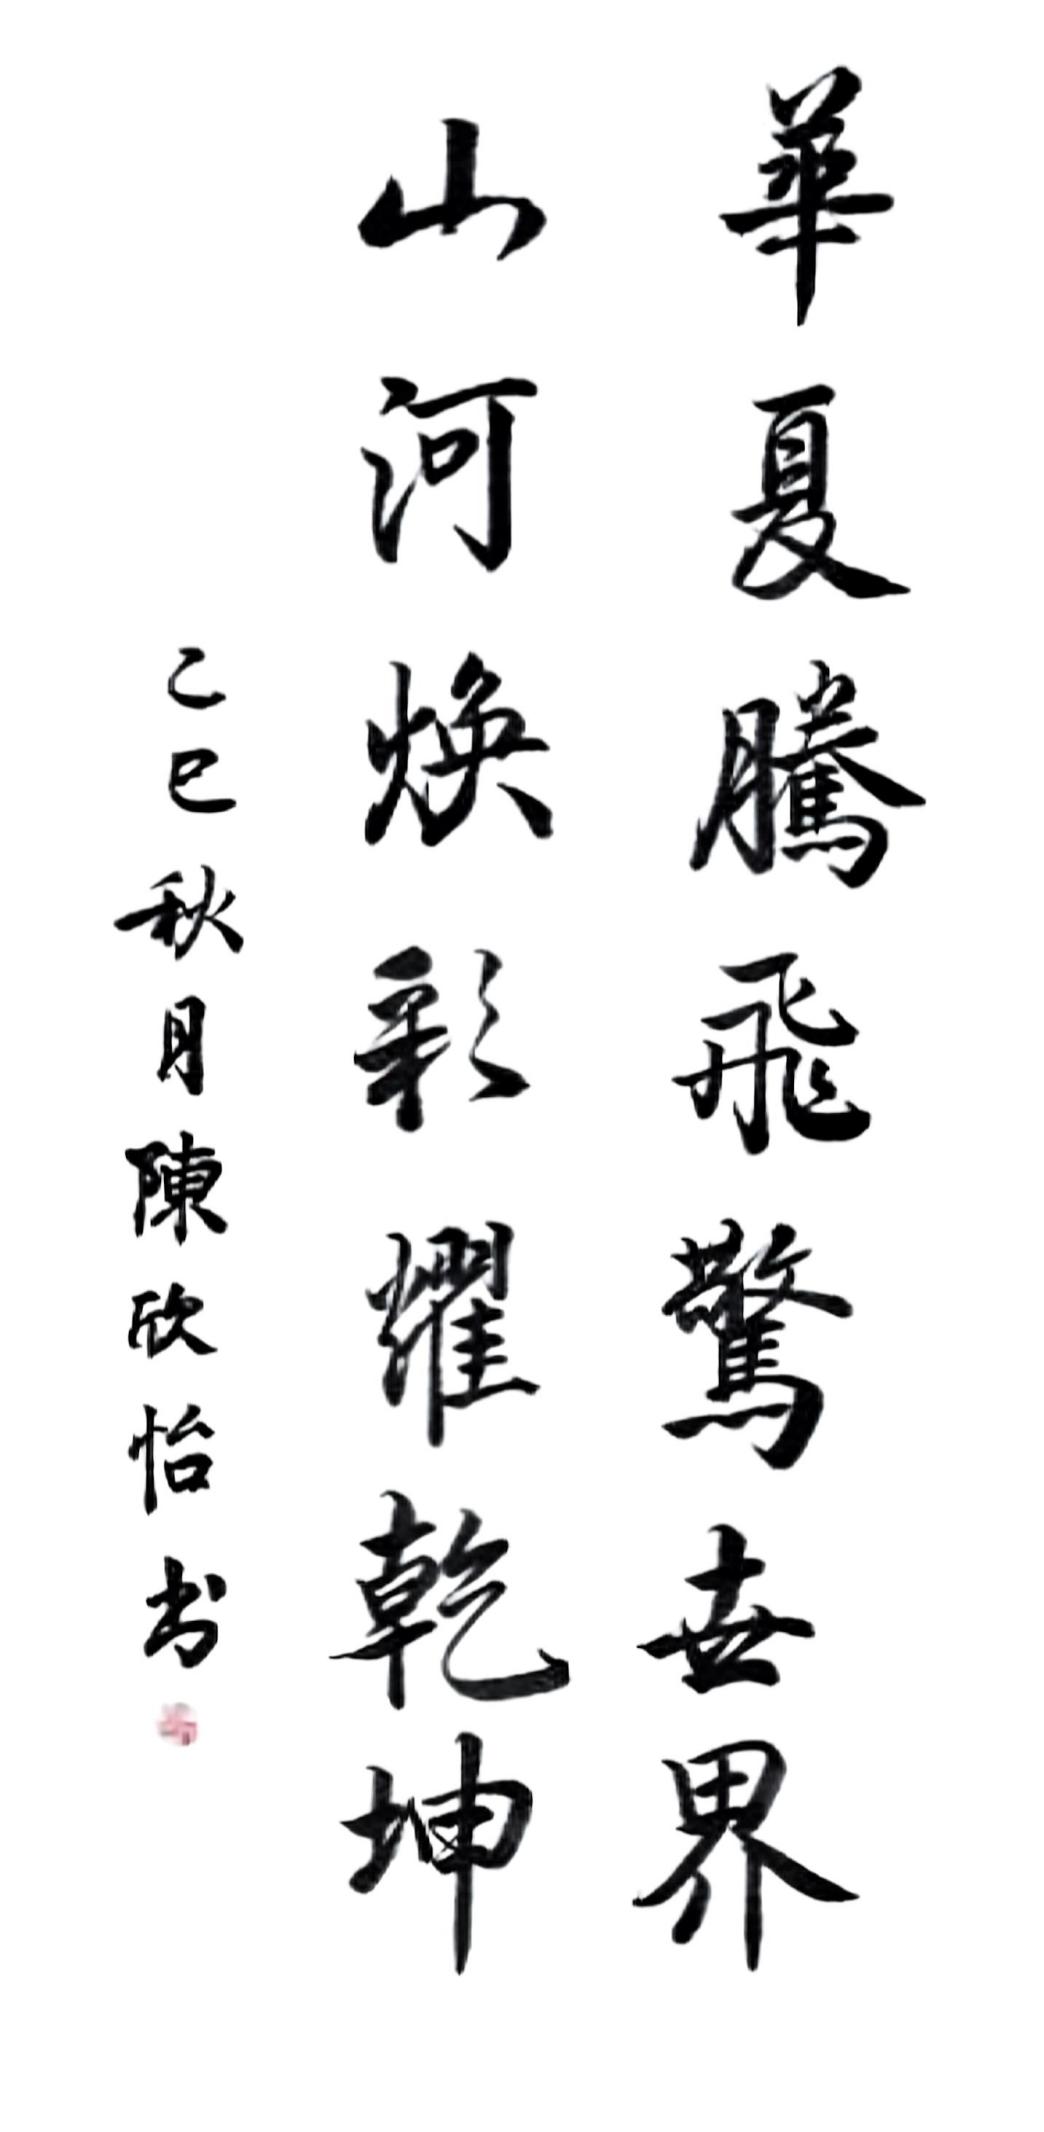 華夏騰飛驚世界
山河焕彩耀乾坤
乙巳秋月陳欣怡书